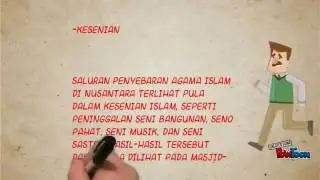 -KESENIAN
SALURAN PENYEBARAN AGAMA ISLAM
DI NUSANTARA TERLIHAT PULA
DALAM KESENIAN ISLAM, SEPERTI
PENINGGALAN SENI BANGUNAN, SENO
PAHAT, SENI MUSIK, DAN SENI
HASIL-HASIL TERSEBUT
DILIHAT PADA MASJID-
PowToon